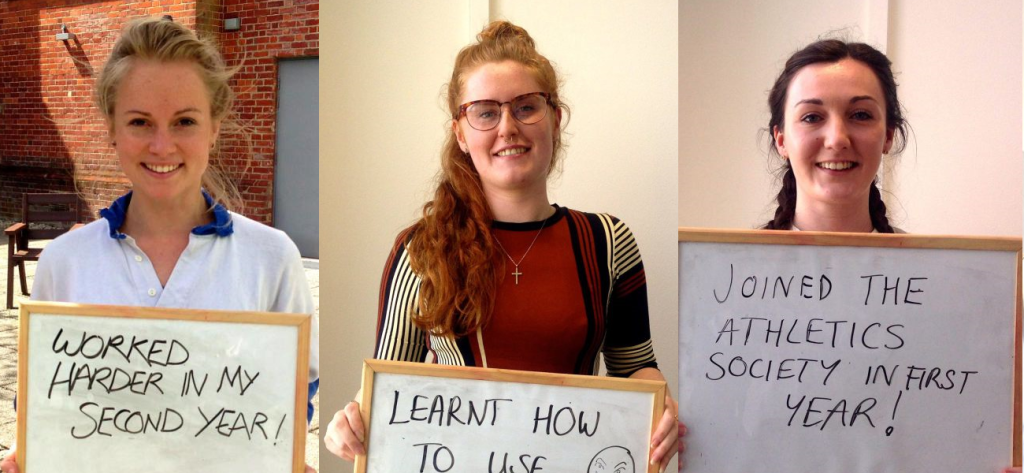 WORKED
HARDER IN MY
SECOND YEAR!
LEARNT HOW
TO USE
JOINED THE
ATHLETICS
SOCIETY IN FIRST
YEAR!